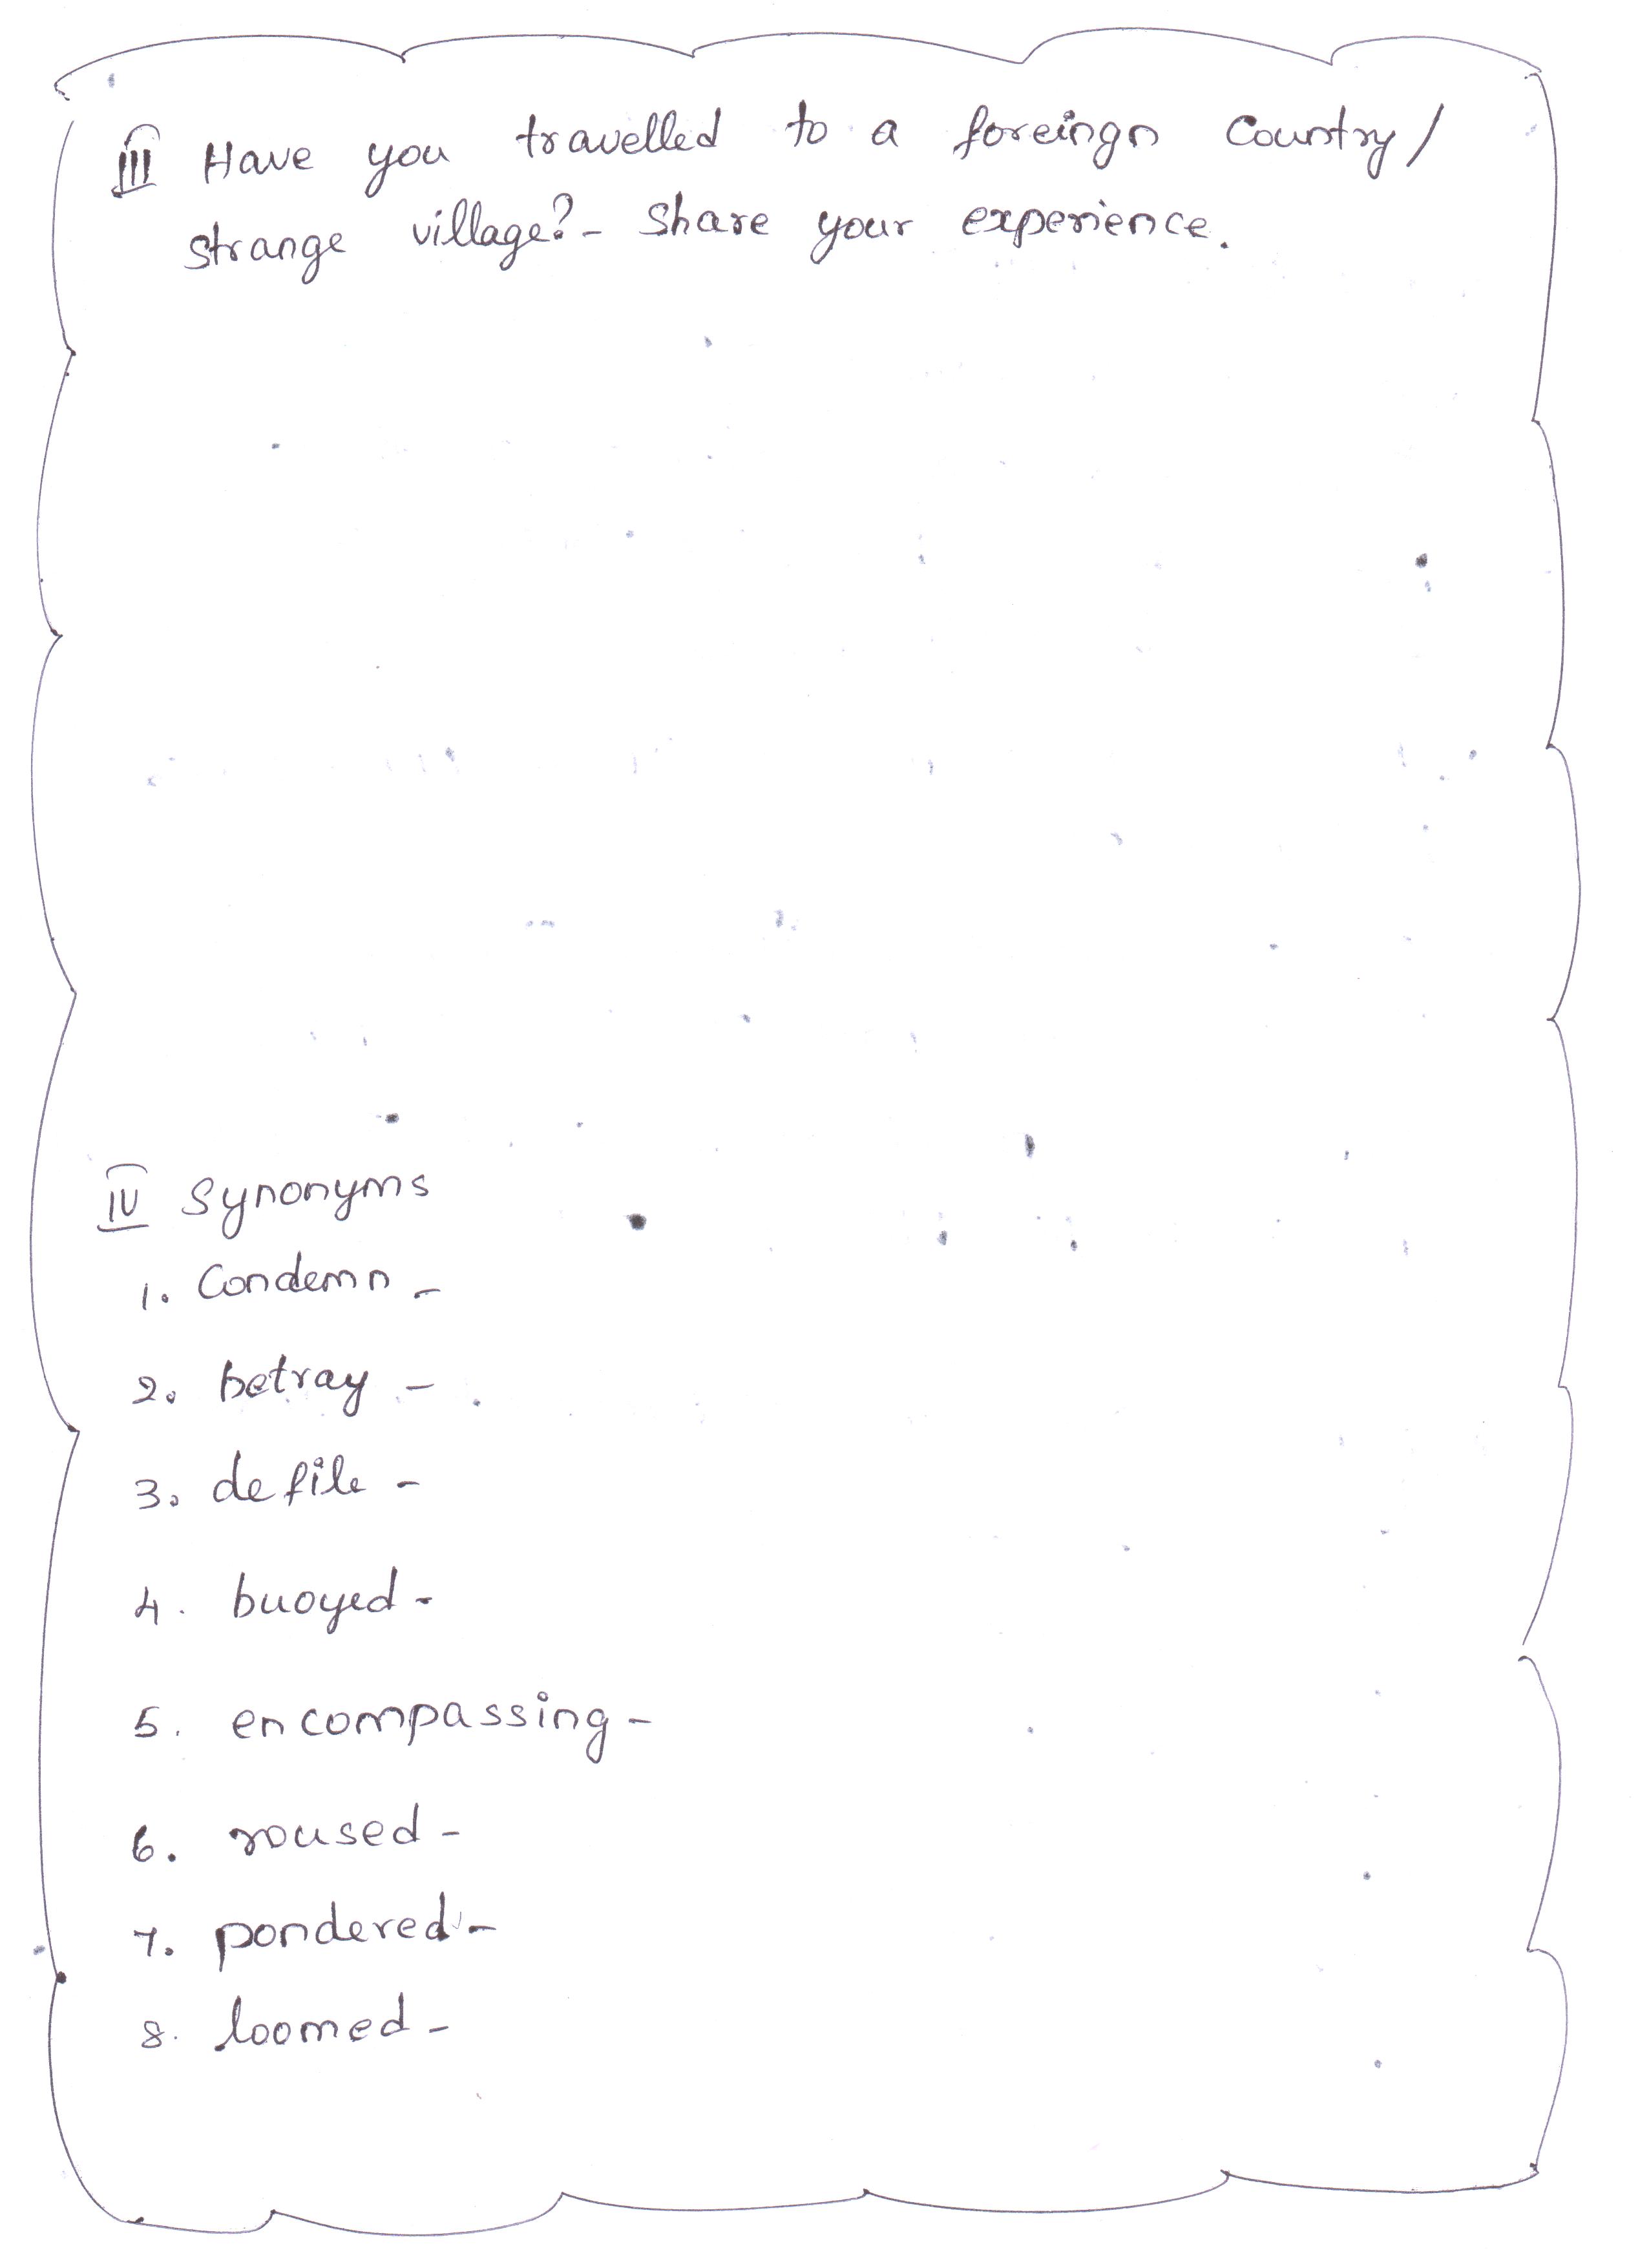 III Have you travelled to a foreingn Country/
strange village?- Share your experience.
IV Synonyms
1. Condemn -
2. betray -
3. defile -
4. buoyed -
5. encompassing -
6. roused -
7. pondered -
8. loomed -